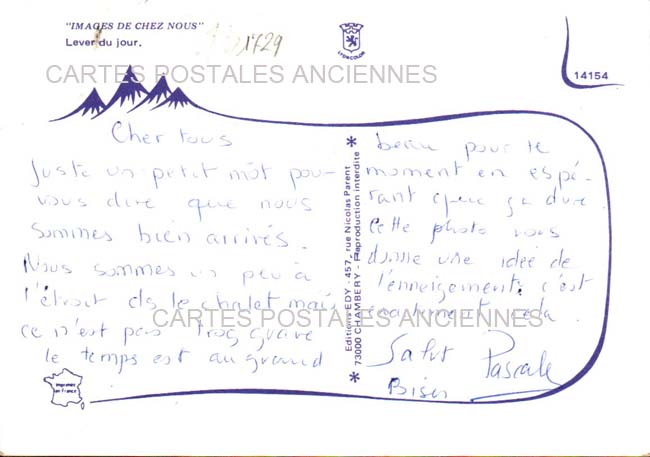 "IMAGES DE CHEZ NOUS"
Lever du jour.
1729
LYONCOLOR
14154
CARTES POSTALES ANCIENNES
Cher tous
Juste un petit mot pour
vous dire que nous
sommes bien arrivés.
Nous sommes un peu à
l'étroit ds le chalet mais
ce n'est pas trop grave
le temps est au grand
Editions EDY - 457, rue Nicolas Parent
73000 CHAMBERY - Reproduction interdite
beau pour le
moment en espé-
rant que ça dure.
Cette photo vous
donne une idée de
l'enneigement, c'est
exactement cela.
CARTES POSTALES ANCIENNES
Salut Pascale
Bises
Imprimée
en France